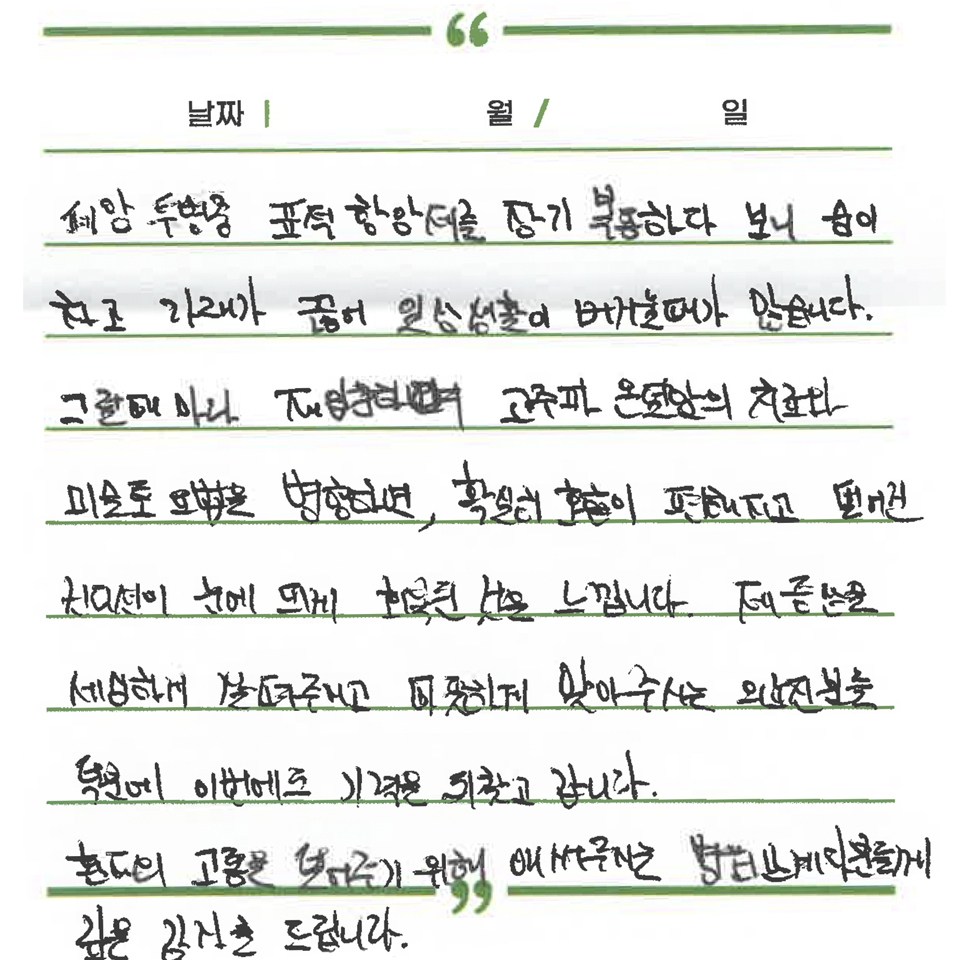 “
날짜 | 월 / 일
폐암 투병중 표적 항암제를 장기 복용하다 보니 숨이
차고 가래가 끓어 일상생활이 버거울때가 많습니다.
그럴때 마다 고주파 온열암의 치료와
미슬토 요법을 병행하면, 확실히 호흡이 편해지고 떨어진
컨디션이 눈에 띄게 회복된 것을 느낍니다. 제 증상을
세심하게 살펴주시고 따뜻하게 맞아주시는 의료진분들
덕분에 이번에도 기력을 되찾고 갑니다.
환자의 고통을 덜어주기 위해 애써주시는 관계자분들께
”
깊은 감사를 드립니다.